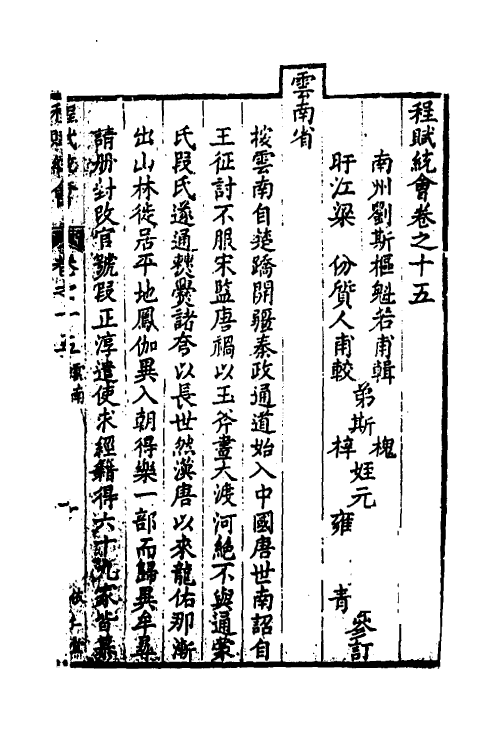 程賦統會卷之十五
南州劉斯樞魁若甫輯
盱江梁　份質人甫較
弟斯槐
梓
姪元雍
青
叅訂
雲南省
按雲南自莊蹻開疆秦政通道始入中國唐世南詔自
王征討不服宋監唐禍以玉斧畫大渡河絶不與通蒙
氏段氏遂通㸑諸夸以長世然漢唐以來龍佑那漸
出山林徙居平地鳳伽異入朝得樂一部而歸異牟尋
請册封改官號段正淳遣使求經籍得六十九家皆
雲南